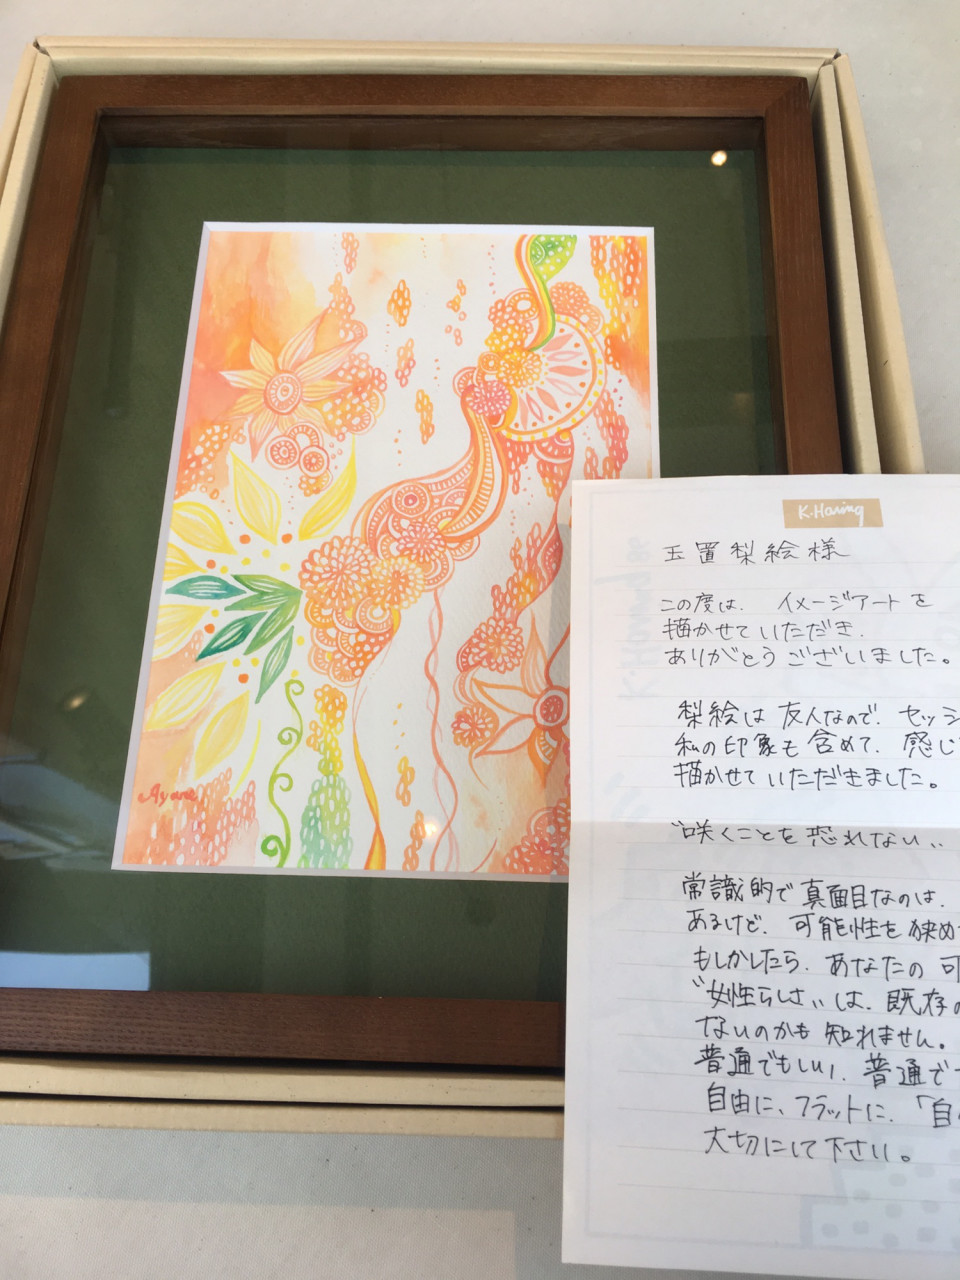 Ayana
K.Haring
玉置梨絵様
この度は、イメージアートを
描かせていただき、
ありがとうございました。
梨絵は友人なので、セッシ
私の印象も含めて、感じ
描かせていただきました。
〝咲くことを恐れない〟
常識的で真面目なのは、
あるけど、可能性を狭め
もしかしたら、あなたの可
〝女性らしさ〟は、既存の
ないのかも知れません。
普通でもしい、普通で
自由に、フラットに、「自
大切にして下さい。